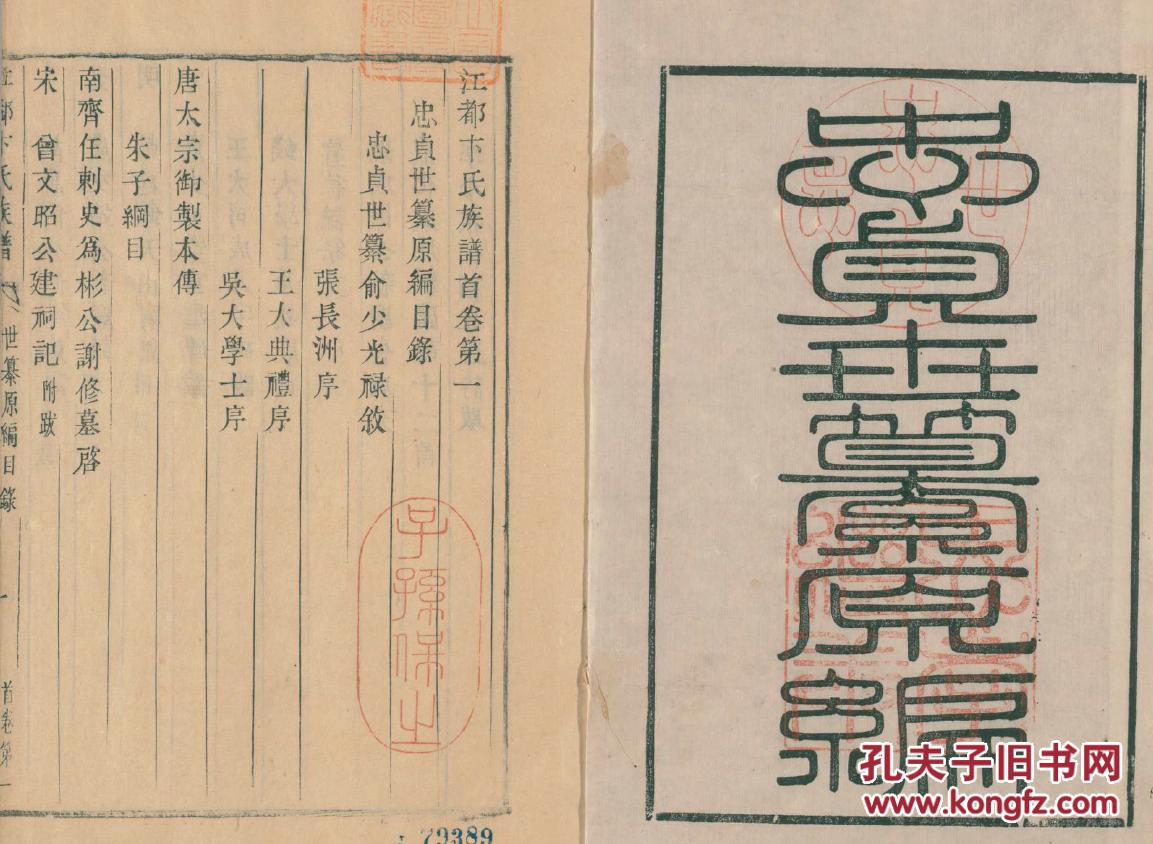 忠貞世纂原編
江都卞氏族譜首卷第一
忠貞世纂原編目錄
忠貞世纂俞少光禄敘
張長洲序
王大典禮序
吳大學士序
唐太宗御製本傳
朱子綱目
南齊任刺史爲彬公謝修墓啓
宋 曾文昭公建祠記 附跋
江都卞氏族譜 世纂原編目錄 一 首卷第一
子孫保之
79389
孔夫子旧书网
www.kongfz.com